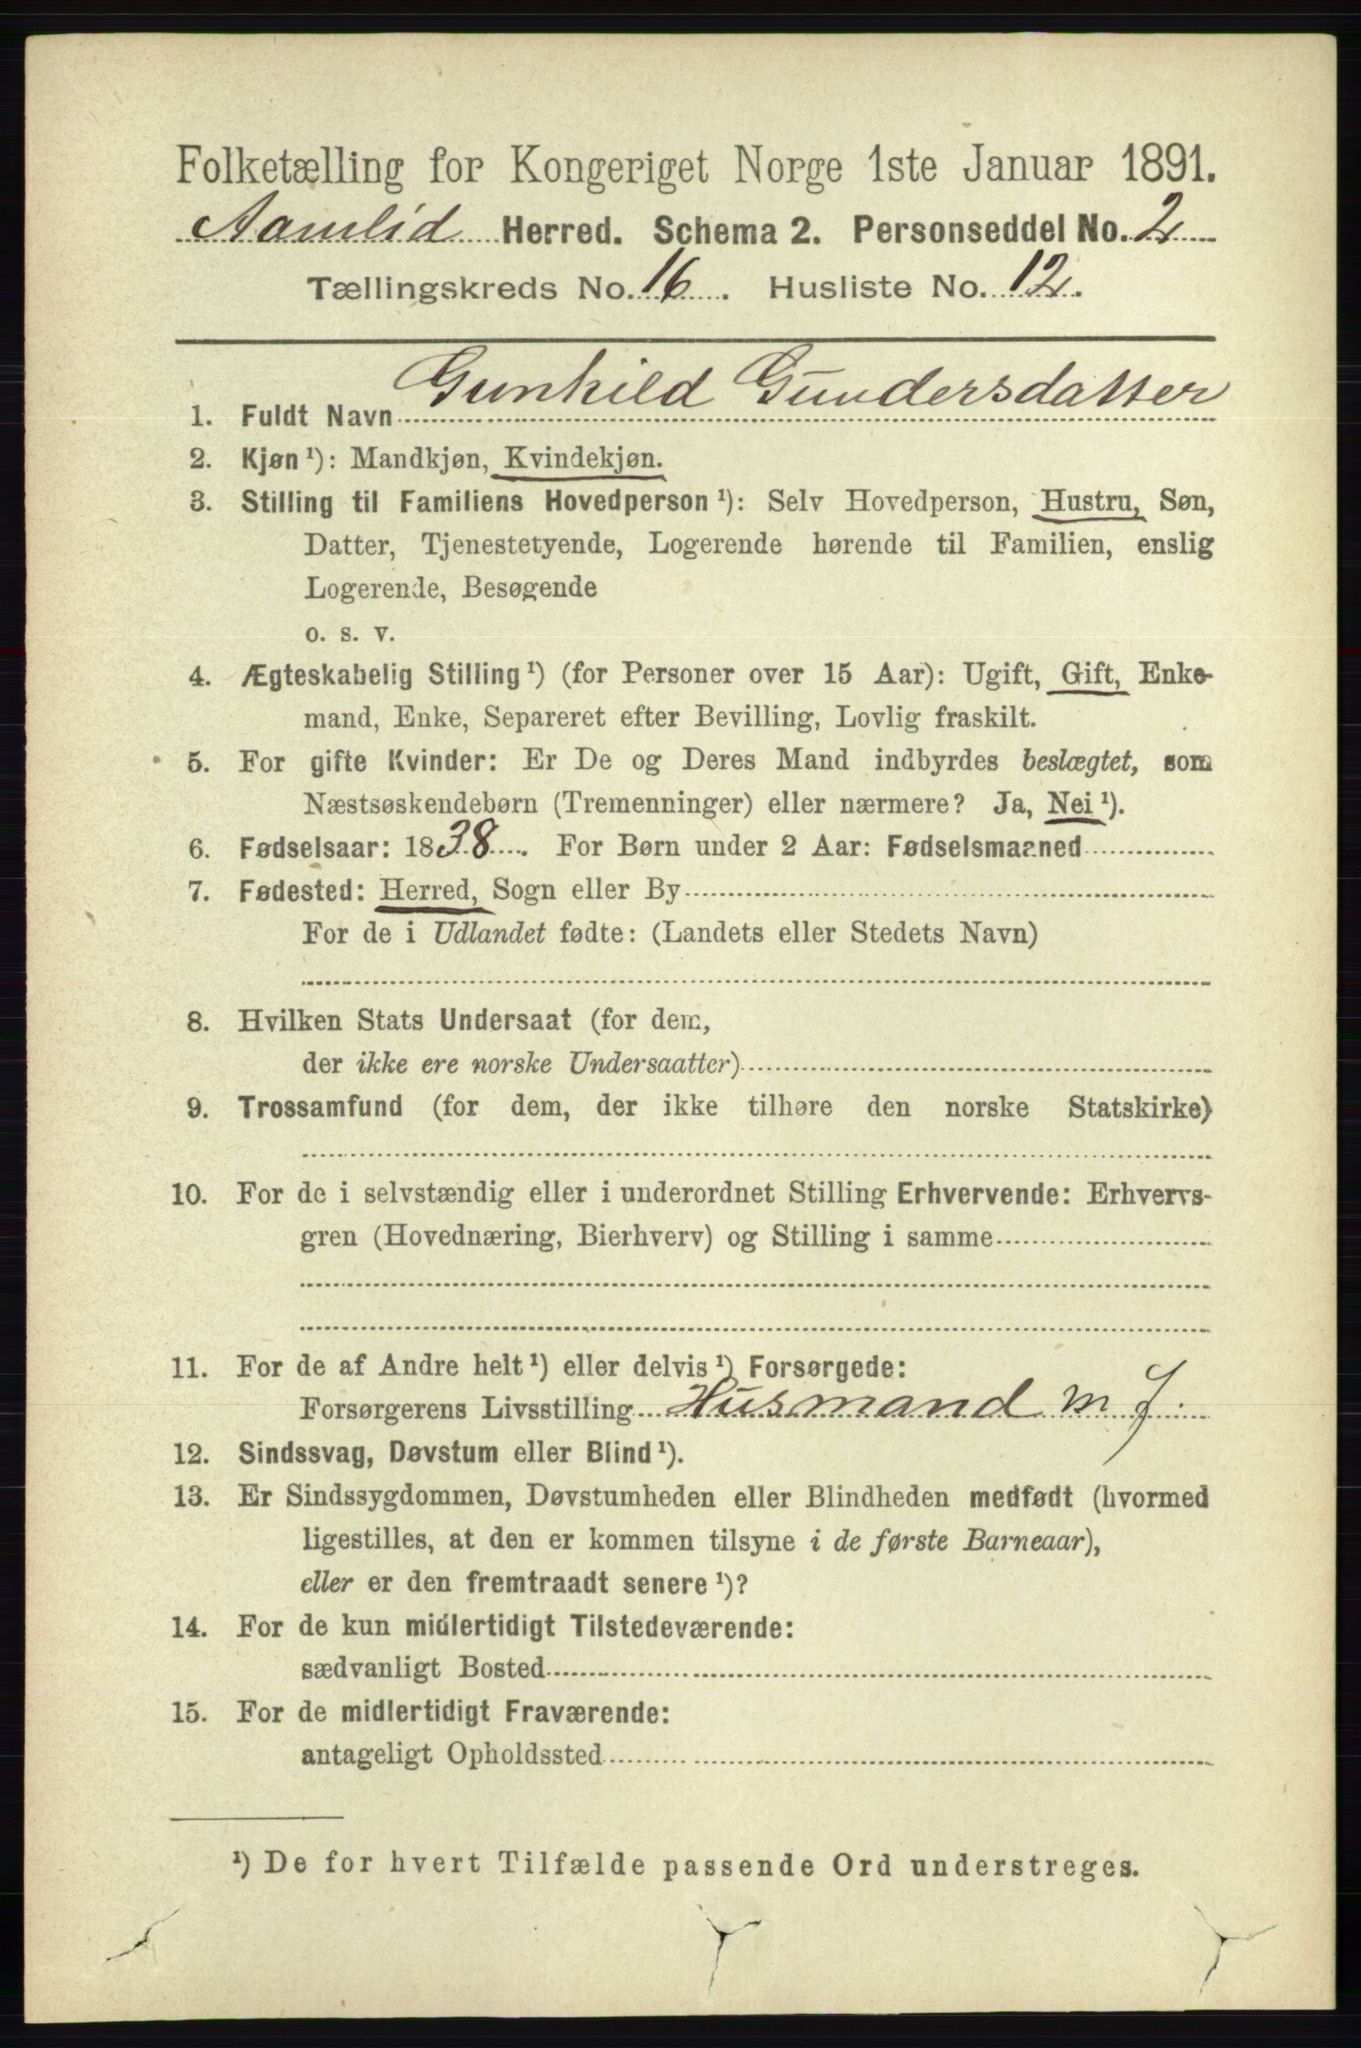 Folketælling for Kongeriget Norge 1ste Januar 1891.
Aamlid Herred. Schema 2. Personseddel No. 2
Tællingskreds No. 16. Husliste No. 12.
1. Fuldt Navn Gunhild Gundersdatter
2. Kjøn ¹): Mandkjøn, Kvindekjøn.
3. Stilling til Familiens Hovedperson ¹): Selv Hovedperson, Hustru, Søn,
Datter, Tjenestetyende, Logerende hørende til Familien, enslig
Logerende, Besøgende
o. s. v.
4. Ægteskabelig Stilling ¹) (for Personer over 15 Aar): Ugift, Gift, Enke-
mand, Enke, Separeret efter Bevilling, Lovlig fraskilt.
5. For gifte Kvinder: Er De og Deres Mand indbyrdes beslægtet, som
Næstsøskendebørn (Tremenninger) eller nærmere? Ja, Nei ¹).
6. Fødselsaar: 1838. For Børn under 2 Aar: Fødselsmaaned
7. Fødested: Herred, Sogn eller By
For de i Udlandet fødte: (Landets eller Stedets Navn)
8. Hvilken Stats Undersaat (for dem,
der ikke ere norske Undersaatter)
9. Trossamfund (for dem, der ikke tilhøre den norske Statskirke)
10. For de i selvstændig eller i underordnet Stilling Erhvervende: Erhvervs-
gren (Hovednæring, Bierhverv) og Stilling i samme
11. For de af Andre helt ¹) eller delvis ¹) Forsørgede:
Forsørgerens Livsstilling Husmand m J.
12. Sindssvag, Døvstum eller Blind ¹).
13. Er Sindssygdommen, Døvstumheden eller Blindheden medfødt (hvormed
ligestilles, at den er kommen tilsyne i de første Barneaar),
eller er den fremtraadt senere ¹)?
14. For de kun midlertidigt Tilstedeværende:
sædvanligt Bosted
15. For de midlertidigt Fraværende:
antageligt Opholdssted
¹) De for hvert Tilfælde passende Ord understreges.